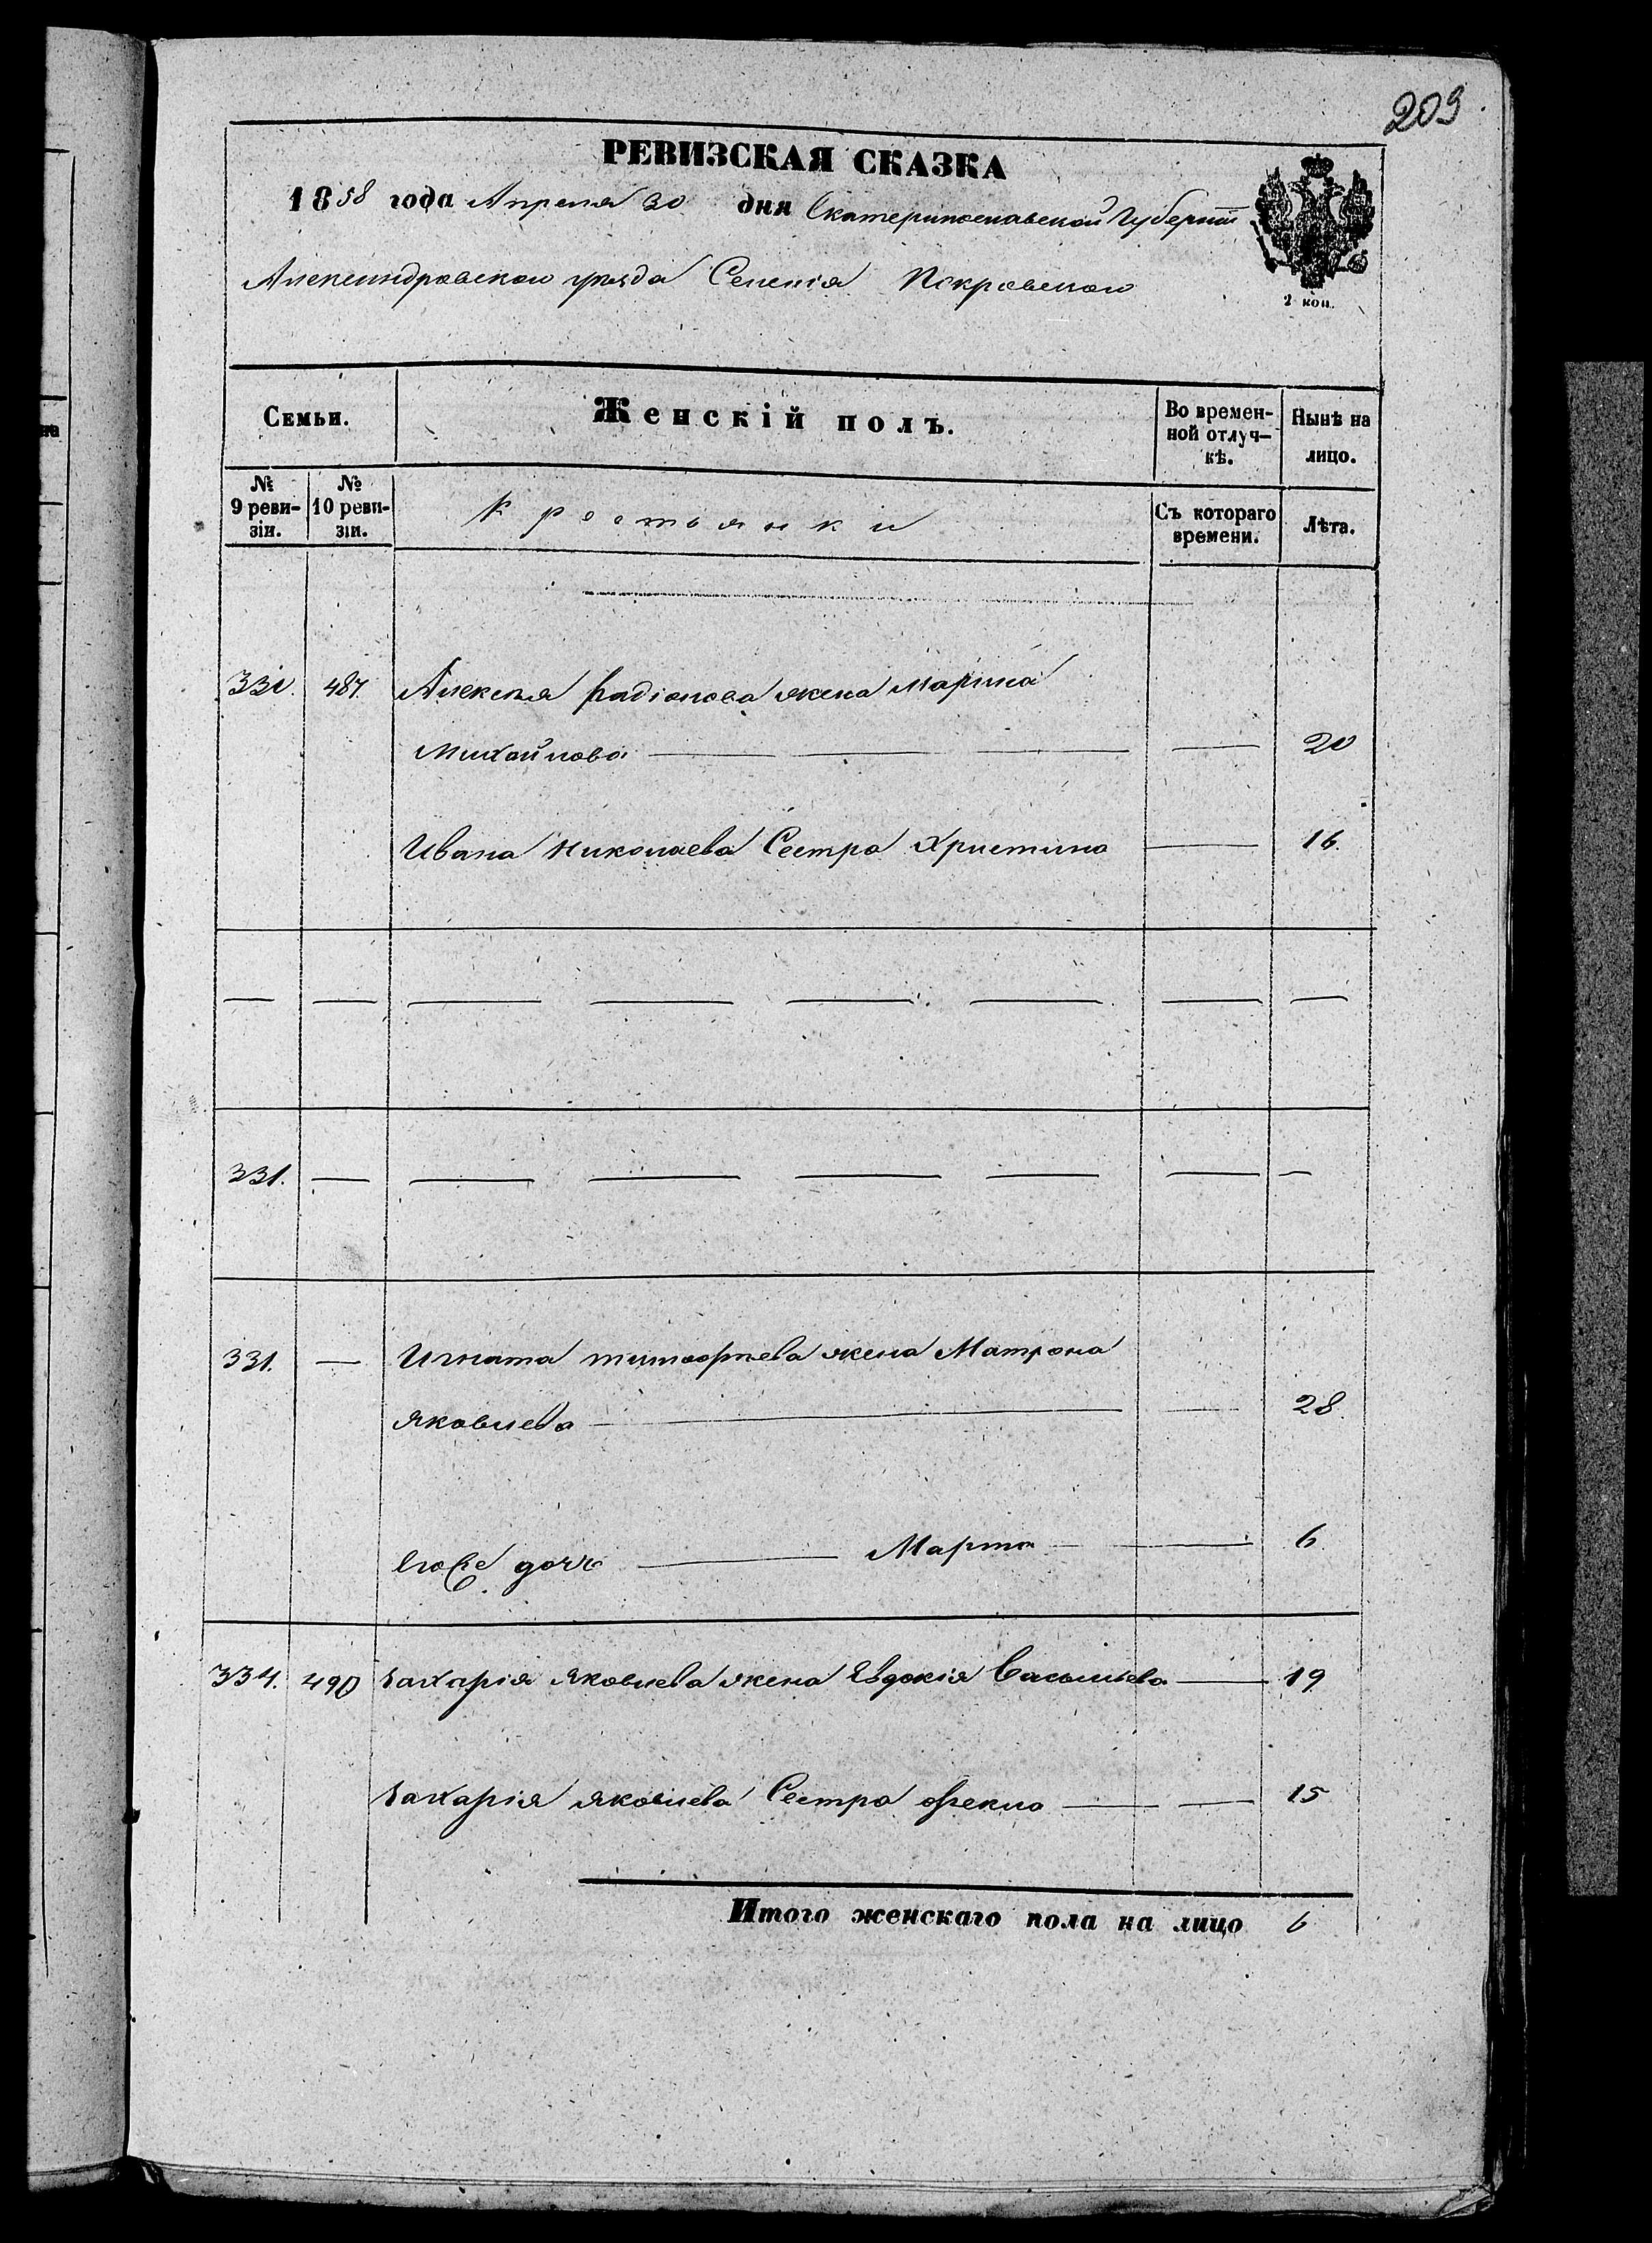 209
РЕВИЗСКАЯ СКАЗКА
1858 года Апреля 30 дня Екатеринославской Губерніи
Александровскаго уѣзда Селенія Покровскаго
2 коп.
Семьи. Женскій полъ. Во времен-
ной отлуч-
кѣ. Нынѣ на
лицо.
№
9 реви-
зіи. №
10 реви-
зіи. Крестьянки Съ котораго
времени. Лѣта.
330. 487. Алексѣя Радіонова жена Марина
Михайлова — — — — 20
Ивана Николаева Сестра Христина — 16.
— — — — — — — —
331. — — — — — — —
331. — Игната тимоофѣева жена Матрона
Яковлева — — 28.
дочь — Марта — — 6.
334. 490 Захарія Яковлева жена Евдокія Васильева — 19
Захарія Яковлева Сестра Ѳекла — — 15
Итого женскаго пола на лицо 6